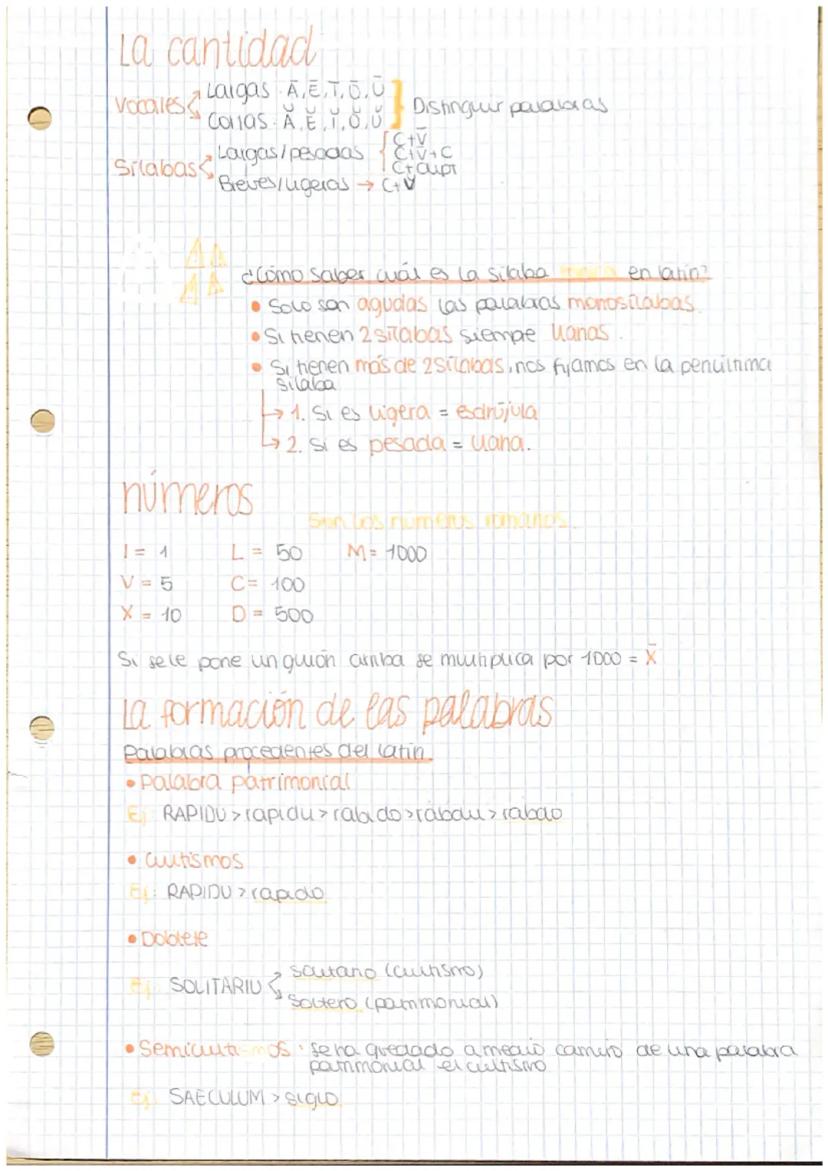 La cantidad
Vocales Largas: Ā, Ē, Ī, Ō, Ū
Cortas: Ă, Ĕ, Ĭ, Ŏ, Ŭ
Distinguir palabras
Sílabas Largas/pesadas C+V̄
C+V+C
C+Dipt
Breves/ligeras → C+V̆
¿Cómo saber cuál es la sílaba en latín?
• Solo son agudas las palabras monosílabas.
• Si tienen 2 sílabas siempre llanas.
• Si tienen más de 2 sílabas, nos fijamos en la penúltima
sílaba
→ 1. Si es ligera = esdrújula
→ 2. Si es pesada = llana.
números
Son los números romanos.
I = 1 L = 50 M = 1000
V = 5 C = 100
X = 10 D = 500
Si se le pone un guión arriba se multiplica por 1000 = X̄
La formación de las palabras
Palabras procedentes del latín.
• Palabra patrimonial
Ej: RAPIDU > rapidu > rabido > rabdu > rabdo
• Cultismos
Ej: RAPIDU > rapido
• Doblete
Ej: SOLITARIU solitario (cultismo)
Soltero (patrimonial)
• Semicultismos: se ha quedado a medio camino de una palabra
patrimonial el cultismo
Ej: SAECULUM > siglo